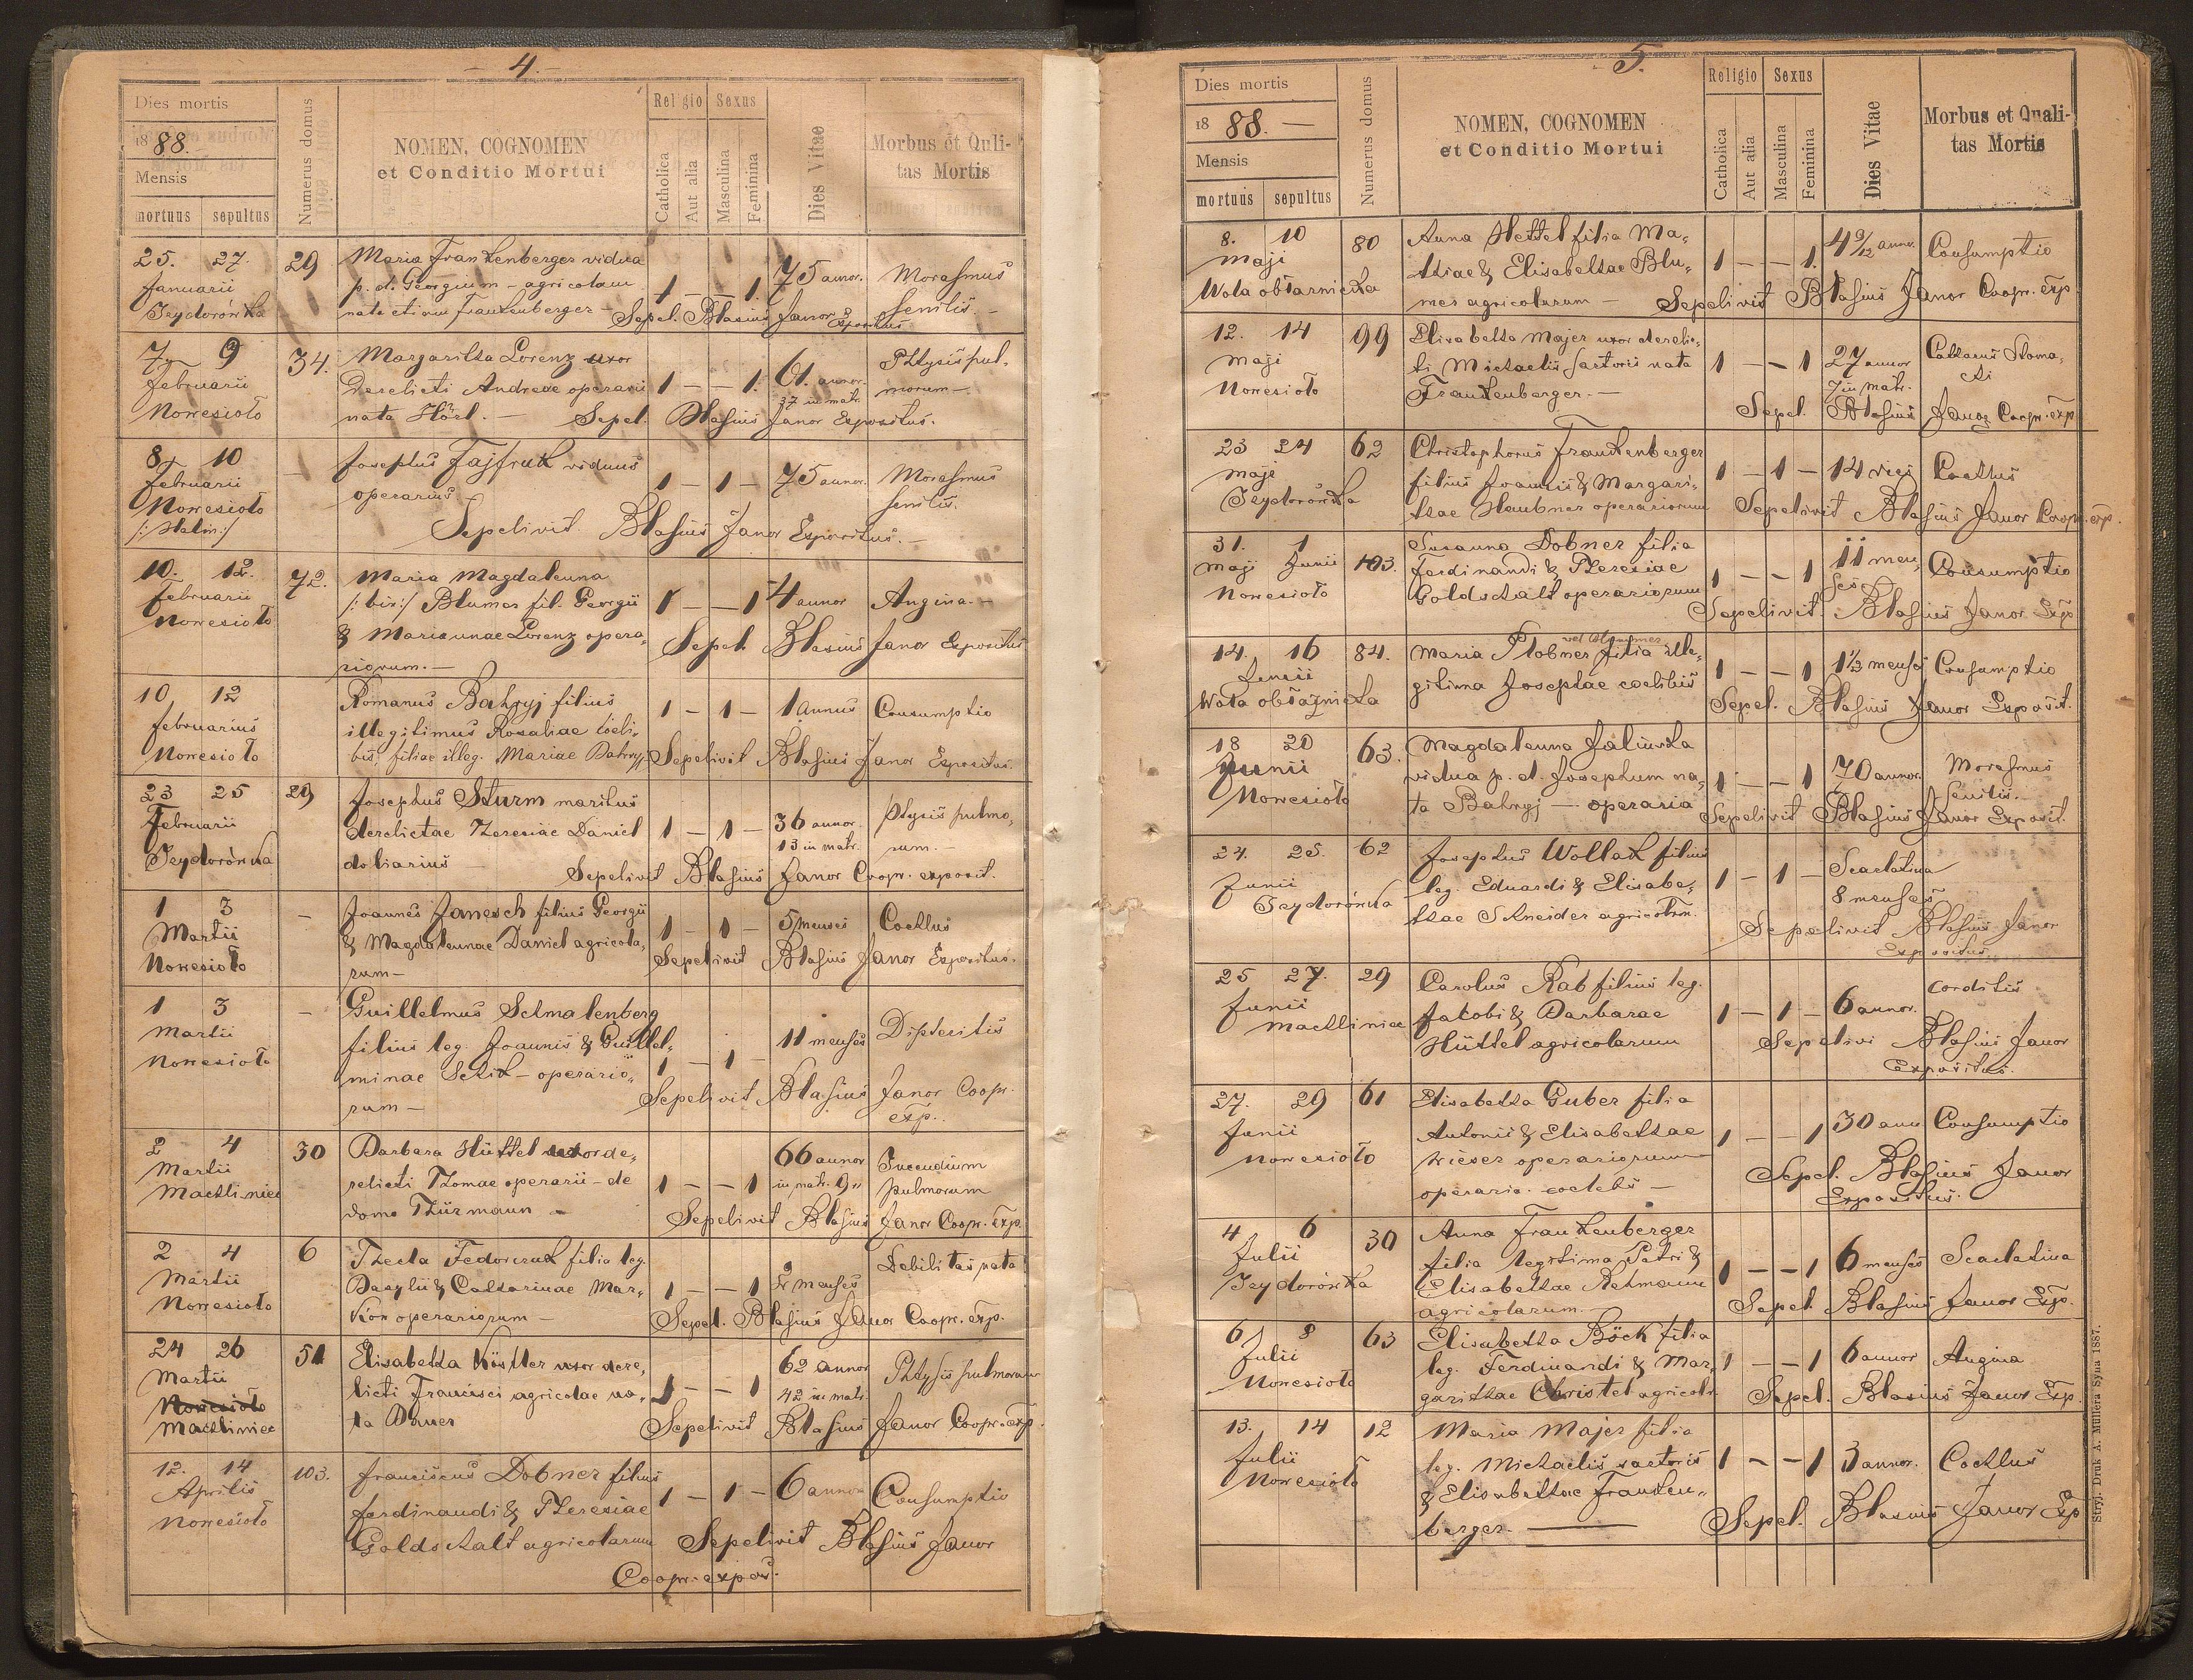 4.
Dies mortis
1888.
Mensis
mortuus sepultus
Numerus domus
NOMEN, COGNOMEN
et Conditio Mortui
Religio
Catholica
Aut alia
Sexus
Masculina
Feminina
Dies Vitae
Morbus et Quli-
tas Mortis
25. 27. 29 Maria Frankenberger vidua
Januarii p. d. Georgium - agricolam 1 - - 1. 75 annor. Morasmus
Isydorówka nata etiam Frankenberger - senilis. -
Sepel. Blasius Janor Expositus
7 9 34. Margaritha Lorenz uxor
Februarii Derelicti Andreae operarii 1 - - 1. 61. annor. Phtysis pul-
Nowesioło nata Hörl. - 37 in matr. morum -
Sepel. Blasius Janor Expositus.
8 10 - Josephus Fajfruk viduus
Februarii operarius - 1 - 1 - 75 annor. Morasmus
Nowesioło senilis.
Sepelivit Blasius Janor Expositus. -
10. 12. 72. Maria Magdalenna
Februarii /: bin:/ Blumer fil. Georgii 1 - - 1 4 annor Angina. -
Nowesioło & Mariannae Lorenz opera-
riorum. -
Sepel. Blasius Janor Expositus
10 12 Romanus Bahryj filius
februarius illegitimus Rosaliae coeli- 1 - 1 - 1 annus Consumptio
Nowesioło bis, filiae illeg. Mariae Bahryj
Sepelivit Blasius Janor Expositus.
23 25 29 Josephus Sturm maritus
Februarii derelictae Theresiae Daniel 1 - 1 - 36 annor. phtysis pulmo-
Isydorówka doliarius - 13 in matr. rum. -
Sepelivit Blasius Janor Coopr. exposit.
1 3 - Joannes Janesch filius Georgii
Martii & Magdalennae Daniel agricola- 1 - 1 - 5 menses Coethus
Nowesioło rum -
Sepelivit Blasius Janor Expositus.
1 3 - Guillelmus Schmalenberg
Martii filius leg. Joannis & Guillel- 11 menses Difteritis
Nowesioło minae Schik - operario- 1 - 1 -
rum -
Sepelivit Blasius Janor Coopr.
exp.
2 4 30 Barbara Hüttel uxor de- 66 annor Incendium
Martii relicti Thomae operarii - de 1 - - 1 in matr. 9 pulmorum
Machliniec domo Thürmann -
Sepelivit Blasius Janor Coopr. Exp.
2 4 6 Thecla Fedorczuk filia leg. Debilitas nata
Martii Basylii & Catharinae Mar- 1 - - 1 2 menses
Nowesioło kow operariorum -
Sepel. Blasius Janor Coopr. exp.
24 26 51 Elisabetha Köstler uxor dere- 62 annor Phtysis pulmorum
Martii licti Francisci agricolae na- 1 - - 1 42 in matr.
Nowesioło
Machliniec ta Bauer
Sepelivit Blasius Janor Coopr. exp.
12. 14 103. Franciscus Dobner filius
Aprilis Ferdinandi & Theresiae 1 - 1 - 6 annor Consumptio
Nowesioło Goldschalt agricolarum
Sepelivit Blasius Janor
Coopr. expos.
5.
Dies mortis
1888. -
Mensis
mortuus sepultus
Numerus domus
NOMEN, COGNOMEN
et Conditio Mortui
Religio
Catholica
Aut alia
Sexus
Masculina
Feminina
Dies Vitae
Morbus et Quali-
tas Mortis
8. 10 80 Anna Hettel filia Ma- 4 9/12 annor. Consumptio
Maji thiae & Elisabethae Blu- 1 - - 1.
Wola obłaznicka mer agricolarum -
Sepelivit Blasius Janor Coopr. exp.
12. 14 99 Elisabetha Majer uxor derelic-
Maji ti Michaelis sartoris nata 1 - - 1 27 annor Catharus Stoma-
Nowesioło Frankenberger. - 7 in matr. chi
Sepel. Blasius Janor Coopr. exp.
23 24 62 Christophorus Frankenberger
Maji filius Joannis & Margari- 1 - 1 - 14 dies Coethus
Isydorówka thae Haubner operariorum
Sepelivit Blasius Janor Coopr. exp.
31. 1 103. Susanna Dobner filia
Maji Junii Ferdinandi & Theresiae 1 - - 1 11 men- Consumptio
Nowesioło Goldschalt operariorum ses
Sepelivit. Blasius Janor Exp.
14. 16 84. Maria Plobner filia ille- 1 1/2 menses Consumptio
Junii gitima Josephae coelibis 1 - - 1
Wola obłaznicka
Sepel. Blasius Janor Exposit.
18 20 63. Magdalenna Jalinska
Junii vidua p. d. Josephum na- 1 - - 1 70 annor. Morasmus
Nowesioło ta Bahryj - operaria senilis. -
Sepelivit Blasius Janor Exposit.
24. 25. 62 Josephus Wollak filius
Junii leg. Eduardi & Elisabe- 1 - 1 - Scarlatina
Isydorówka thae Schneider agricolarum. 8 menses
Sepelivit Blasius Janor
Expositus
25 27. 29 Carolus Rab filius leg.
Junii Jakobi & Barbarae 1 - 1 - 6 annor. corditis
Machliniec Hüttel agricolarum
Sepelivi Blasius Janor
Expositus.
27. 29 61 Elisabetha Guber filia
Junii Antonii & Elisabethae 1 - - 1 30 annor Consumptio
Nowesioło Wieser operariorum
operaria. coelebs -
Sepel. Blasius Janor
Expositus.
4 6 30 Anna Frankenberger
Julii filia legitima Petri & 1 - - 1 6 menses Scarlatina
Isydorówka Elisabethae Rehmann
agricolarum. -
Sepel. Blasius Janor Exp.
6 8 63 Elisabetha Böck filia
Julii leg. Ferdinandi & Mar- 1 - - 1 6 annor Angina
Nowesioło garithae Christel agricol.
Sepel. Blasius Janor Exp.
13. 14 12 Maria Majer filia
Julii leg. Michaelis sartoris 1 - - 1 3 annor. Coethus
Nowesioło & Elisabethae Franken-
berger. -
Sepel. Blasius Janor Exp
Stryj. Druk A. Müllera Syna 1887.